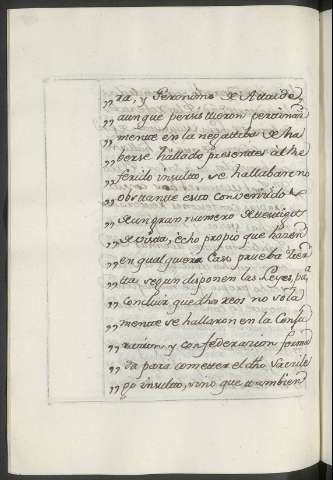 „ ra, y Geronimo de Attaide,
„ aunque persistieron pertinaz
„ mente en la negattiba de ha
„ berse hallado presentes à el re
„ ferido insulto, se hallaban no
„ obstante esto convencidos
„ de un gran numero de testigos
„ de vista, echo propio que hacen
„ en qualquiera caso prueba
„ segun disponen las Leyes, pa.
„ concluir que dhos reos no sola
„ mente se hallaron en la Conju
„ racion, y confederacion forma
„ da para cometter el dho sacrile
„ go insulto, sino que tambien